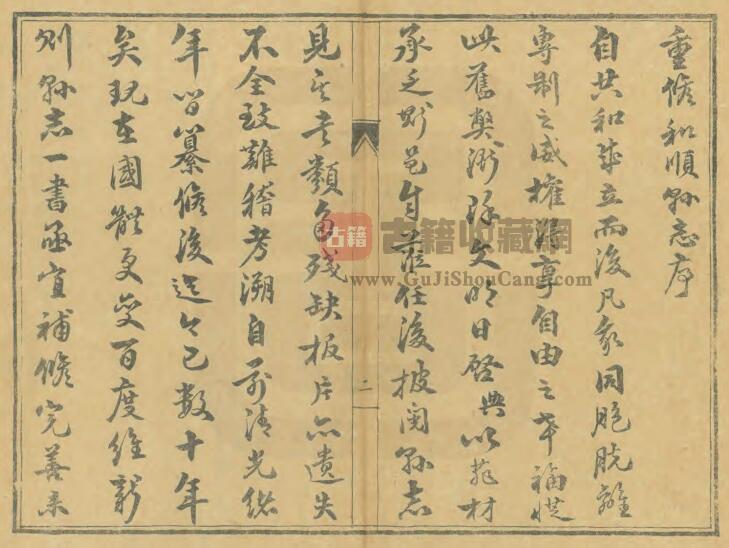 重修和順縣志序
自共和成立而後凡我同胞脫離
專制之威權得享自由之幸福從
此舊弊漸除文明日啓典以菲材
承乏斯邑自蒞任後披閱縣志
二
見其書類多殘缺板片亦遺失
不全致難稽考溯自前清光緒
年間纂修後迄今已數十年
矣現在國體更變百度維新
則縣志一書亟宜補修完善未
古籍
古籍收藏網
www.GuJiShouCang.com